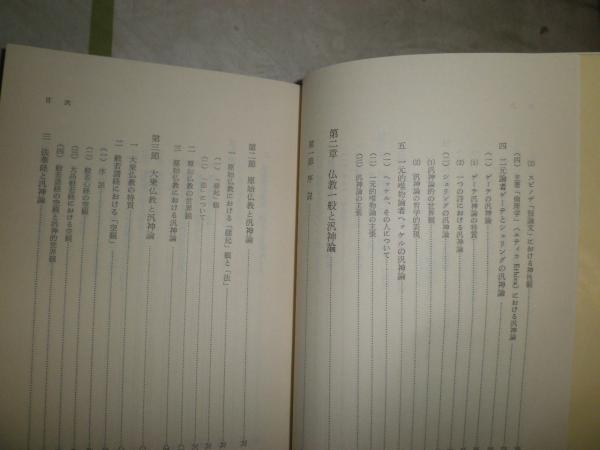 ⑵ スピノザ『短論文』における神性観
(四) 主著『倫理学』(エティカ Ethica)における汎神論
四 二元論者ゲーテとシェリングの汎神論
(一) ゲーテの汎神論
⑴ ゲーテ汎神論の特質
⑵ 一つの詩における汎神論
(二) シェリングの汎神論
⑴ 汎神論的世界観
⑵ 汎神論の哲学的表現
五 一元的唯物論者ヘッケルの汎神論
(一) ヘッケル、その人について
(二) 一元的唯物論の主張
(三) 汎神論の主張
第二章 仏教一般と汎神論
第一節 序説
目次
第二節 原始仏教と汎神論
一 原始仏教における「縁起」観と「法」
(一) 「縁起」観
(二) 「法」について
二 原始仏教の世界観
三 原始仏教における汎神論
第三節 大乗仏教と汎神論
一 大乗仏教の特質
二 般若諸経における「空観」
(一) 序説
(二) 般若心経の空観
(三) 大品般若経における空観
(四) 般若諸経の空観と汎神的世界観
三 法華経と汎神論